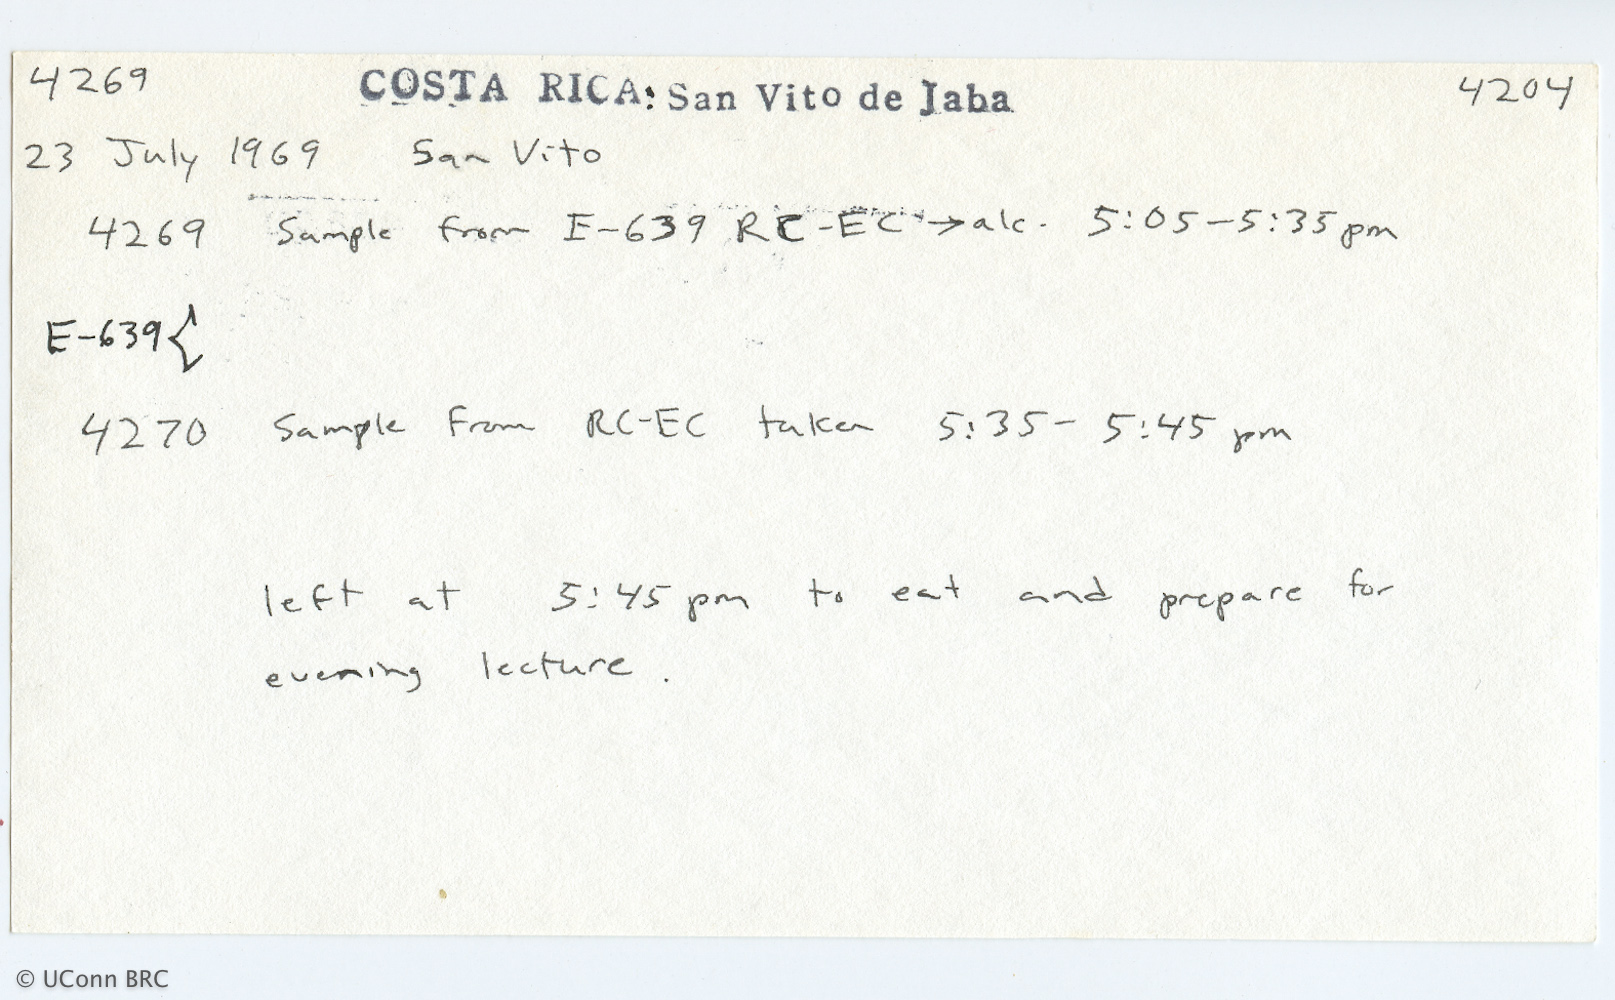 4269 COSTA RICA: San Vito de Jaba 4204
23 July 1969 San Vito
4269 Sample from E-639 RC-EC → alc. 5:05-5:35pm
E-639 {
4270 Sample from RC-EC taken 5:35-5:45 pm
left at 5:45 pm to eat and prepare for
evening lecture.
© UConn BRC